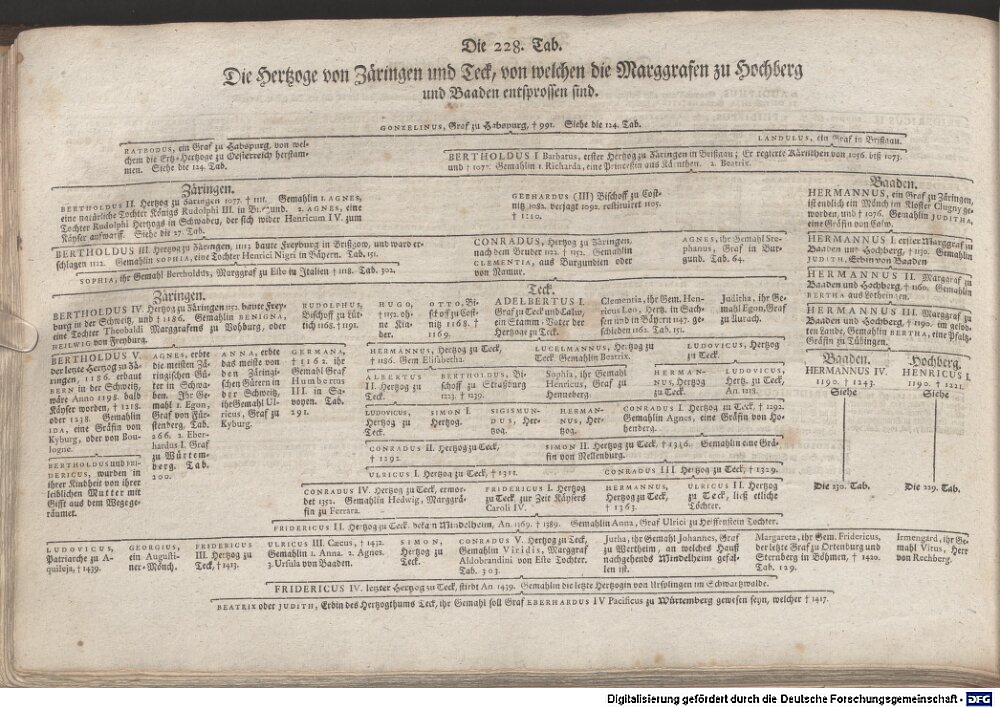 Die 228. Tab.
Die Hertzoge von Zäringen und Teck, von welchen die Marggrafen zu Hochberg
und Baaden entsprossen sind.
GONZELINUS, Graf zu Habspurg, † 991. Siehe die 124. Tab.
RATBODUS, ein Graf zu Habspurg, von wel-
chem die Ertz-Hertzoge zu Oesterreich herstam-
men. Siehe die 124. Tab.
LANDULUS, ein Graf in Brißgau.
BERTHOLDUS I Barbatus, erster Hertzog zu Zäringen in Brißgau; Er regierte Kärnthen von 1056. biß 1073.
und † 1077. Gemahlin 1. Richarda, eine Princeßin aus Kärnthen. 2. Beatrix.
Zäringen.
BERTHOLDUS II. Hertzog zu Zäringen 1077. † 1111. Gemahlin 1. AGNES,
eine natürliche Tochter Königs Rudolphi III. in Burgund. 2. AGNES, eine
Tochter Rudolphi Hertzogs in Schwaben, der sich wider Henricum IV. zum
Käyser aufwarff. Siehe die 27. Tab.
GEBHARDUS (III) Bischoff zu Cost-
nitz, 1082. verjagt 1092. restituiret 1105.
† 1110.
Baaden.
HERMANNUS, ein Graf zu Zäringen,
ist endlich ein Mönch im Kloster Clugny ge-
worden, und † 1076. Gemahlin JUDITHA,
eine Gräfin von Calw.
BERTHOLDUS III. Hertzog zu Zäringen, 1112 baute Freyburg in Brißgow, und ward er-
schlagen 1122. Gemahlin SOPHIA, eine Tochter Henrici Nigri in Bäyern. Tab. 151.
CONRADUS, Hertzog zu Zäringen,
nach dem Bruder 1122. † 1152. Gemahlin
CLEMENTIA, aus Burgundien oder
von Namur.
AGNES, ihr Gemahl Ste-
phanus, Graf in Bur-
gund. Tab. 64.
HERMANNUS I. erster Marggraf zu
Baaden und Hochberg, † 1130. Gemahlin
JUDITH, Erbin von Baaden
SOPHIA, ihr Gemahl Bertholdus, Marggraf zu Este in Italien † 1118. Tab. 302.
HERMANNUS II. Marggraf zu
Baaden und Hochberg, † 1160. Gemahlin
BERTHA aus Lothringen.
Zäringen.
BERTHOLDUS IV. Hertzog zu Zäringen 1152. baute Frey-
burg in der Schweitz, und † 1186. Gemahlin BENIGNA,
eine Tochter Theobaldi Marggrafens zu Vohburg, oder
HEILWIG von Freyburg.
RUDOLPHUS,
Bischoff zu Lüt-
tich 1168. † 1191.
HUGO,
† 1152. oh-
ne Kin-
der.
OTTO, Bi-
schof zu Cost-
nitz 1168. †
1169.
Teck.
ADELBERTUS I.
Graf zu Teck und Calw,
ein Stamm-Vater der
Hertzoge zu Teck.
Clementia, ihr Gem. Hen-
ricus Leo, Hertz. in Sach-
sen und in Bäyern 1147. ge-
schieden 1162. Tab. 151.
Juditha, ihr Ge-
mahl Egon, Graf
zu Aurach.
HERMANNUS III. Marggraf zu
Baaden und Hochberg, † 1190. im gelob-
ten Lande, Gemahlin BERTHA, eine Pfaltz-
Gräfin zu Tübingen.
BERTHOLDUS V.
der letzte Graf zu Zä-
ringen, 1186. erbaut
BERN in der Schweitz,
wäre Anno 1198. bald
Käyser worden, † 1218.
oder 1238. Gemahlin
IDA, eine Gräfin von
Kyburg, oder von Bou-
logne.
AGNES, erbte
die meisten Zä-
ringischen Gü-
ter in Schwa-
ben. Ihr Ge-
mahl 1. Egon,
Graf von Für-
stenberg. Tab.
266. 2. Eber-
hardus I. Graf
zu Würtem-
berg. Tab.
200.
ANNA, erbte
das meiste von
den Zäringi-
schen Gütern in
der Schweitz,
ihr Gemahl Ul-
ricus, Graf zu
Kyburg.
GERMANA,
† 1162. ihr
Gemahl Graf
Humbertus
III. in Sa-
voyen. Tab.
291.
HERMANNUS, Hertzog zu Teck,
† 1186. Gem Elisabetha.
LUCELMANNUS, Hertzog zu
Teck. Gemahlin Beatrix.
LUDOVICUS, Hertzog
zu Teck.
ALBERTUS
II. Hertzog zu
Teck.
BERTHOLDUS, Bi-
schoff zu Straßburg
1223. † 1239.
Sophia, ihr Gemahl
Henricus, Graf zu
Henneberg.
HERMAN-
NUS, Hertzog
zu Teck.
LUDOVICUS,
Hertz. zu Teck,
An. 1218.
Baaden.
HERMANNUS IV.
1190. † 1243.
Siehe
Die 230. Tab.
Hochberg.
HENRICUS I.
1190. † 1221.
Siehe
Die 229. Tab.
LUDOVICUS,
Hertzog zu
Teck.
SIMON I.
Hertzog.
SIGISMUN-
DUS, Her-
tzog.
HERMAN-
NUS, Her-
tzog.
CONRADUS I. Hertzog zu Teck, † 1292.
Gemahlin Agnes, eine Gräfin von Ho-
henberg.
BERTHOLDUS und FRI-
DERICUS, wurden in
ihrer Kindheit von ihrer
leiblichen Mutter mit
Gifft aus dem Wege ge-
räumet.
CONRADUS II. Hertzog zu Teck,
† 1292.
SIMON II. Hertzog zu Teck, † 1346. Gemahlin eine Grä-
fin von Nellenburg.
ULRICUS I. Hertzog zu Teck, † 1311.
CONRADUS III Hertzog zu Teck, † 1329.
CONRADUS IV. Hertzog zu Teck, ermor-
det 1352. Gemahlin Hedwig, Marggrä-
fin zu Ferrara.
FRIDERICUS I. Hertzog
zu Teck zur Zeit Käysers
Caroli IV.
HERMANNUS,
Hertzog zu Teck,
† 1363.
ULRICUS II. Hertzog
zu Teck, ließ etliche
Töchter.
FRIDERICUS II. Hertzog zu Teck, bekam Mindelheim, An. 1369. † 1389. Gemahlin Anna, Graf Ulrici zu Helffenstein Tochter.
LUDOVICUS,
Patriarche zu A-
quileja, † 1439.
GEORGIUS,
ein Augusti-
ner-Mönch.
FRIDERICUS
III. Hertzog zu
Teck, † 1413.
ULRICUS III. Cæcus, † 1432.
Gemahlin 1. Anna. 2. Agnes.
3. Ursula von Baaden.
SIMON,
Hertzog zu
Teck.
CONRADUS V. Hertzog zu Teck,
Gemahlin Viridis, Marggraf
Aldobrandini von Este Tochter.
Tab. 303.
Jutha, ihr Gemahl Johannes, Graf
zu Wertheim, an welches Hauß
nachgehends Mindelheim gefal-
len ist.
Margareta, ihr Gem. Fridericus,
der letzte Graf zu Ortenburg und
Sternberg in Böhmen, † 1420.
Tab. 129.
Irmengård, ihr Ge-
mahl Vitus, Herr
von Rechberg.
FRIDERICUS IV. letzter Hertzog zu Teck, stirbt An 1439. Gemahlin die letzte Hertzogin von Urßlingen im Schwartzwalde.
BEATRIX oder JUDITH, Erbin des Hertzogthums Teck, ihr Gemahl soll Graf EBERHARDUS IV Pacificus zu Würtemberg gewesen seyn, welcher † 1417.
Digitalisierung gefördert durch die Deutsche Forschungsgemeinschaft - DFG